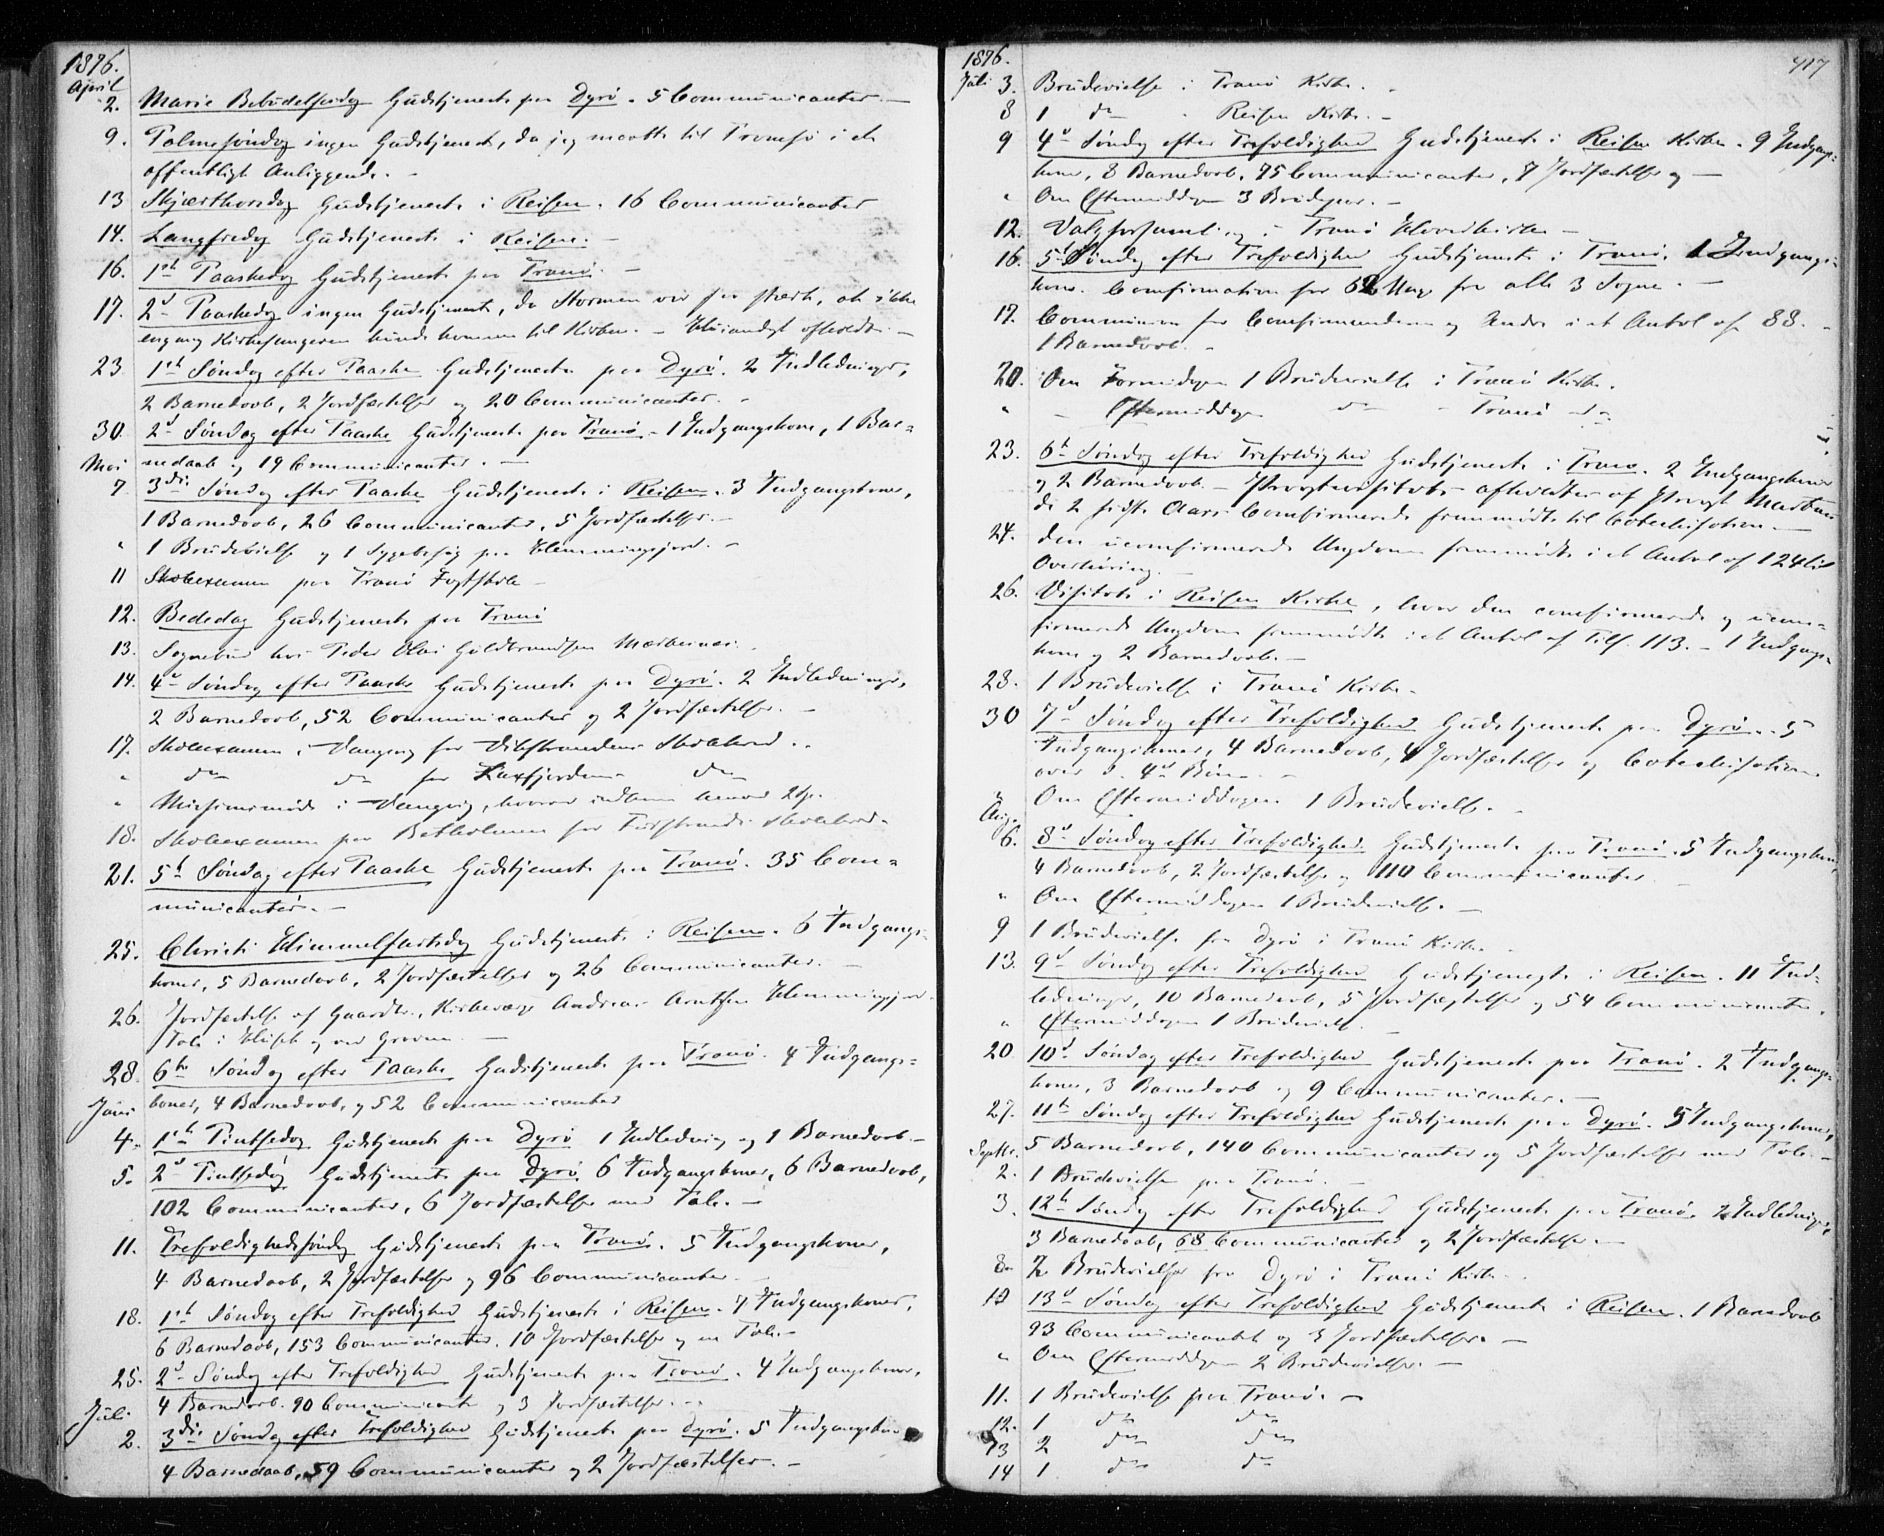 1876.
April
2. Mariæ Bebudelsesdag Gudstjeneste paa Dyrö. 5 Communicanter.
9. Palmesöndag ingen Gudstjeneste, da jeg maatte til Tromsö i et
offentligt Anliggende.
13 Skjærthorsdag Gudstjeneste i Reisen. 16 Communicanter
14. Langfredag Gudstjeneste i Reisen.
16. 1ste Paaskedag Gudstjeneste paa Tranö.
17. 2d Paaskedag ingen Gudstjeneste, da Stormen var saa stærk, at ikke
engang Kirkesangeren kunde komme til Kirken. - Husandagt afholdt.
23 1ste Söndag efter Paaske Gudstjeneste paa Dyrö. 2 Indledninger,
2 Barnedaab, 2 Jordfæstelser og 20 Communicanter.
30. 2d Söndag efter Paaske Gudstjeneste paa Tranö. 1 Indgangskone, 1 Bar-
Mai nedaab og 19 Communicanter.
7 3die Söndag efter Paaske Gudstjeneste i Reisen. 3 Indgangskoner,
1 Barnedaab, 26 Communicanter, 5 Jordfæstelser.
" 1 Brudevielse og 1 Sygebesög paa Klemmingsfjord.
11 Skoleexamen paa Tranö Fastskole
12. Bededag Gudstjeneste paa Tranö
13. Sognebud hos Peder Olai Hildbrandsen
14. 4de Söndag efter Paaske Gudstjeneste paa Dyrö. 2 Indledninger,
2 Barnedaab, 52 Communicanter og 2 Jordfæstelser.
17. Skoleexamen i Vangsvig for Skolekred.
" do do for Laxfjorden do
" Missionsmöde i Vangsvig, hvorved indkom
18. Skoleexamen paa for Skolekred.
21. 5te Söndag efter Paaske Gudstjeneste paa Tranö. 35 Com-
municanter.
25. Christi Himmelfartsdag Gudstjeneste i Reisen. 6 Indgangs-
koner, 5 Barnedaab, 2 Jordfæstelser og 26 Communicanter.
26. Jordfæstelse af Gaardbr., Kirkeværge Andreas Arntsen Klemmingsfjord.
Tale i Huset og ved Graven.
28. 6te Söndag efter Paaske Gudstjeneste paa Tranö. 4 Indgangs-
Juni koner, 4 Barnedaab, og 52 Communicanter
4. 1ste Pintsedag Gudstjeneste paa Dyrö 1 Indledning og 1 Barnedaab.
5. 2d Pintsedag Gudstjeneste paa Dyrö. 6 Indgangskoner, 6 Barnedaab,
102 Communicanter, 6 Jordfæstelser med Tale.
11. Trefoldighedssöndag Gudstjeneste paa Tranö. 5 Indgangskoner,
4 Barnedaab, 2 Jordfæstelser og 96 Communicanter.
18. 1ste Söndag efter Trefoldighed Gudstjeneste i Reisen. 7 Indgangskoner,
6 Barnedaab, 153 Communicanter. 10 Jordfæstelser og en Tale.
25. 2d Söndag efter Trefoldighed Gudstjeneste paa Tranö. 4 Indgangskoner,
4 Barnedaab. 90 Communicanter og 3 Jordfæstelser.
Juli
2. 3die Söndag efter Trefoldighed Gudstjeneste paa Dyrö. 5 Indgangskoner
4 Barnedaab, 59 Communicanter og 2 Jordfæstelser.
1876. 417
Juli 3. Brudevielse i Tranö Kirke.
8 1 do " Reisen Kirke.
9 4d Söndag efter Trefoldighed Gudstjeneste i Reisen Kirke. 9 Indgangs-
koner, 8 Barnedaab, 95 Communicanter, 8 Jordfæstelser og
" Om Eftermiddagen 3 Brudepar.
12. Valgforsamling i Tranö Hovedkirke
16. 5te Söndag efter Trefoldighed Gudstjeneste i Tranö. 1 Indgangs-
kone. Confirmation for 62 Unge fra alle 3 Sogne.
17. Communion for Confirmanderne og Andre i et Antal af 88.
1 Barnedaab.
20. Om Formidagen 1 Brudevielse i Tranö Kirke.
" - Eftermiddagen do - Tranö do
23. 6te Söndag efter Trefoldighed Gudstjeneste i Tranö. 2 Indgangskoner
og 2 Barnedaab. - Provstevisitats afholdtes af Provst
de 2 sidste Aars Confirmerede fremmödte til Catechisation.
24. den uconfirmerede Ungdom fremmödte i et Antal af 124 til
Overhöring.
26. Visitats i Reisen Kirke, hvor den confirmerede og ucon-
firmerede Ungdom fremmödte i et Antal af tils. 113. - 1 Indgangs-
kone og 2 Barnedaab.
28. 1 Brudevielse i Tranö Kirke.
30 7d Söndag efter Trefoldighed Gudstjeneste paa Dyrö. 5
Indgangskoner, 4 Barnedaab, 4 Jordfæstelser og Catechisation
over d. 4de Bön.
" Om Eftermiddagen 1 Brudevielse.
Aug.
6. 8d Söndag efter Trefoldighed Gudstjeneste paa Tranö. 5 Indgangskoner,
4 Barnedaab, 2 Jordfæstelser og 110 Communicanter.
" Om Eftermiddagen 1 Brudevielse.
9 1 Brudevielse fra Dyrö i Tranö Kirke.
13. 9d Söndag efter Trefoldighed Gudstjeneste i Reisen. 11 Ind-
ledninger, 10 Barnedaab, 5 Jordfæstelser og 54 Communicanter.
" Eftermiddagen 1 Brudevielse.
20 10d Söndag efter Trefoldighed Gudstjeneste paa Tranö. 2 Indgangs-
koner, 3 Barnedaab og 9 Communicanter.
27. 11te Söndag efter Trefoldighed Gudstjeneste paa Dyrö. 5 Indgangskoner,
Septbr. 5 Barnedaab, 140 Communicanter og 5 Jordfæstelser med Tale.
2. 1 Brudevielse paa Tranö.
3. 12te Söndag efter Trefoldighed Gudstjeneste paa Tranö. 2 Indledninger,
3 Barnedaab, 68 Communicanter og 2 Jordfæstelser.
8. 2 Brudevielser fra Dyrö i Tranö Kirke.
10 13d Söndag efter Trefoldighed Gudstjeneste i Reisen. 1 Barnedaab
93 Communicanter og 3 Jordfæstelser.
" Om Eftermiddagen 2 Brudevielser.
11. 1 Brudevielse paa Tranö.
12. 1 do do
13 2 do do
14 1 do do